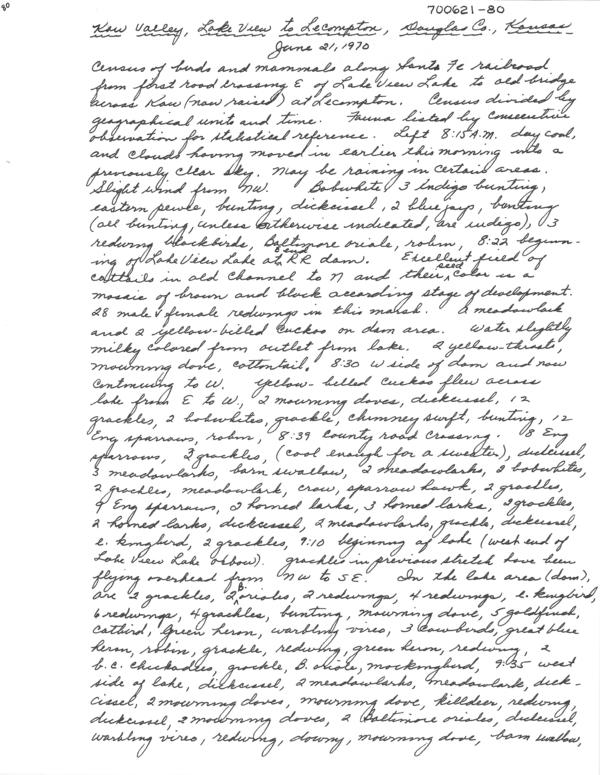 80
700621-80
Kaw Valley, Lake View to Lecompton, Douglas Co., Kansas
June 21, 1970
Census of birds and mammals along Santa Fe railroad
from first road crossing E of Lake View Lake to old bridge
across Kaw (now raised) at Lecompton. Census divided by
geographical units and time. Fauna listed by consecutive
observation for statistical reference. Left 8:15 A.M. day cool,
and clouds having moved in earlier this morning into a
previously clear sky. May be raining in certain areas.
Slight wind from NW. Bobwhite, 3 Indigo bunting,
eastern pewee, bunting, dickcissel, 2 blue jays, bunting
(all bunting, unless otherwise indicated, are indigo), 3
redwing blackbirds, Baltimore oriole, robin, 8:22 beginn-
ing of Lake View Lake at E end RR dam. Excellent field of
cattails in old channel to N and their seed color is a
mosaic of brown and black according stage of development.
28 male & female redwings in this marsh. A meadowlark
and 2 yellow-billed cuckoo on dam area. Water slightly
milky colored from outlet from lake. 2 yellow-throat,
mourning dove, cottontail. 8:30 W side of dam and now
continuing to W. Yellow-billed cuckoo flew across
lake from E to W, 2 mourning doves, dickcissel, 12
grackles, 2 bobwhites, grackle, chimney swift, bunting, 12
Eng sparrows, robin, 8:39 County road crossing. 8 Eng
sparrows, 3 grackles, (cool enough for a sweater), dickcissel,
3 meadowlarks, barn swallow, 2 meadowlarks, 2 bobwhites,
2 grackles, meadowlark, crow, sparrow hawk, 2 grackles,
9 Eng sparrows, 2 horned larks, 3 horned larks, 2 grackles,
2 horned larks, dickcissel, 2 meadowlarks, grackle, dickcissel,
e. kingbird, 2 grackles, 9:10 beginning of lake (west end of
Lake View Lake oxbow). grackles in previous stretch have been
flying overhead from NW to SE. In the lake area (dam),
are 2 grackles, 2 B. orioles, 2 redwings, 4 redwings, e. kingbird,
6 redwings, 4 grackles, bunting, mourning dove, 5 goldfinch,
catbird, green heron, warbling vireo, 3 cowbirds, great blue
heron, robin, grackle, redwing, green heron, redwing, 2
b.c. chickadees, grackle, B. oriole, mockingbird, 9:35 west
side of lake, dickcissel, 2 meadowlarks, meadowlark, dick-
cissel, 2 mourning doves, mourning dove, killdeer, redwing,
dickcissel, 2 mourning doves, 2 Baltimore orioles, dickcissel,
warbling vireo, redwing, downy, mourning dove, barn swallow,